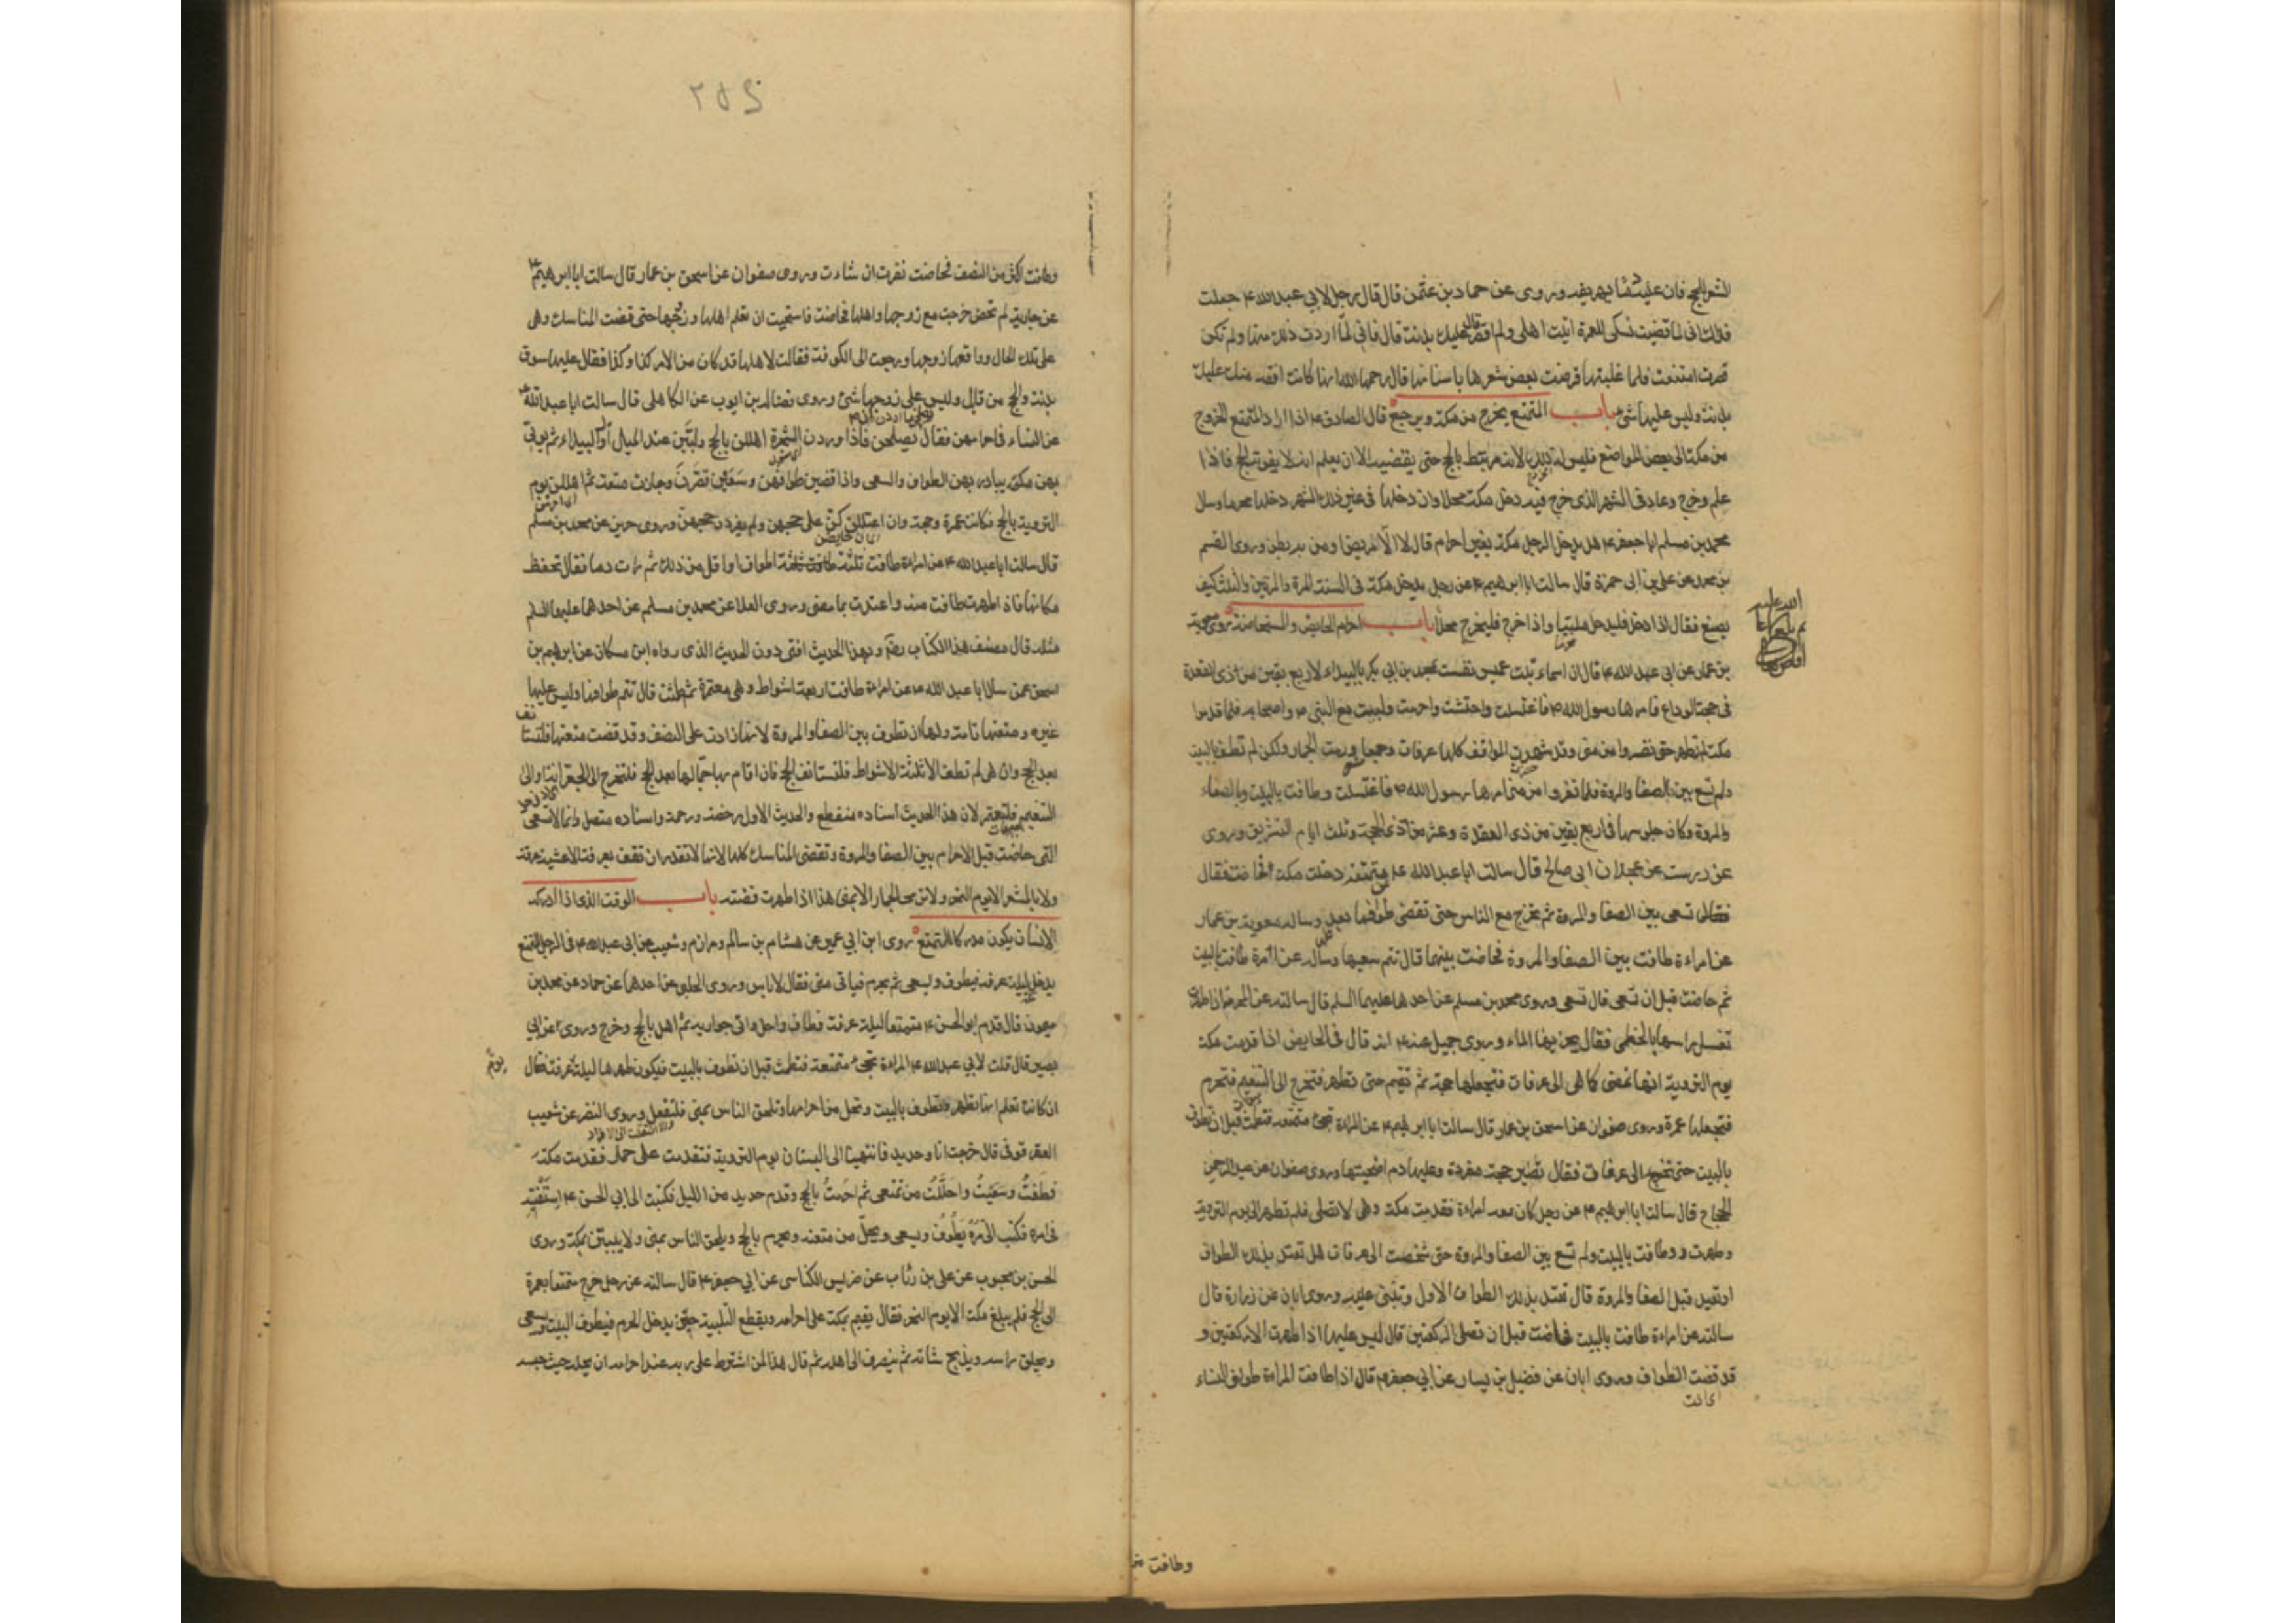 لشعر الحج فان عليه دما يهريقه وروى عن حماد بن عثمن قال قال رجل لابي عبد الله ع جعلت
فداك انى لما قضيت نسكى للعمرة اتيت اهلى ولم اقصر قال عليك بدنة قال فانى لما اردت ذلك منها ولم تكن
قصرت امتنعت فلما غلبتها قرضت بعض شعرها باسنانها قال رحمها الله انها كانت افقه منك عليك
بدنة وليس عليها شئ باب المتمتع يخرج من مكة ويرجع قال الصادق ع اذا اراد المتمتع الخروج
من مكة الى بعض المواضع فليس له ذلك لانه مرتبط بالحج حتى يقضيه الا ان يعلم انه لا يفوته الحج فاذا
علم وخرج وعاد فى الشهر الذى خرج فيه دخل مكة محلا وان دخلها فى غير ذلك الشهر دخلها محرما وسال
محمد بن مسلم ابا جعفر ع هل يدخل الرجل مكة بغير احرام قال لا الا المريض او من به بطن وروى القسم
بن محمد عن على بن ابى حمزة قال سالت ابا ابرهيم ع عن رجل يدخل مكة فى السنة المرة والمرتين والثلث كيف
يصنع فقال اذا دخل فليدخل ملبيا واذا خرج فليخرج محلا باب احرام الحايض والمستحاضة روى معوية
بن عمار عن ابى عبد الله ع قال ان اسماء بنت عميس نفست بمحمد بن ابى بكر بالبيداء لاربع بقين من ذى القعدة
فى حجة الوداع فامرها رسول الله ص فاغتسلت واحتشت واحرمت ولبيت مع النبى ص واصحابه فلما قدموا
مكة لم تطهر حتى نفروا من منى وقد شهدت المواقف كلها عرفات وجمعا ورمت الجمار ولكن لم تطف بالبيت
ولم تسع بين الصفا والمروة فلما نفروا من منى امرها رسول الله ص فاغتسلت وطافت بالبيت وبالصفا
والمروة وكان جلوسها فى اربع بقين من ذى القعدة وعشر من ذى الحجة وثلث ايام التشريق وروى
عن درست عن عجلان ابى صالح قال سالت ابا عبد الله ع عن متمتعة دخلت مكة فحاضت فقال
فقال تسعى بين الصفا والمروة ثم تخرج مع الناس حتى تقضى طوافها بعد وساله معوية بن عمار
عن امراءة طافت بين الصفا والمروة فحاضت بينهما قال تتم سعيها وساله عن امرة طافت بالبيت
ثم حاضت قبل ان تسعى قال تسعى وروى محمد بن مسلم عن احدهما عليهما السلم قال سالته عن المحرمة اذا طهرت
تغسل راسها بالخطمى فقال يجزيها الماء وروى جميل عنه ع انه قال فى الحايض اذا قدمت مكة
يوم التروية انها تمضى كما هى الى عرفات فتجعلها حجة ثم تقيم حتى تطهر فتخرج الى التنعيم فتحرم
فتجعلها عمرة وروى صفوان عن اسحق بن عمار قال سالت ابا ابرهيم ع عن المراءة تجئ متمتعة فتطمث قبل ان تطوف
بالبيت حتى تخرج الى عرفات فقال تصير حجة مفردة وعليها دم اضحيتها وروى صفوان عن عبد الرحمن
الحجاج قال سالت ابا ابرهيم ع عن رجل كان معه امراءة فقدمت مكة وهى لا تصلى فلم تطهر الى يوم التروية
وطهرت وطافت بالبيت ولم تسع بين الصفا والمروة حتى شخصت الى عرفات هل تعتد بذلك الطواف
او تعيد قبل الصفا والمروة قال تعتد بذلك الطواف الاول وتبنى عليه وروى ابان عن زرارة قال
سالته عن امراءة طافت بالبيت فحاضت قبل ان تصلى الركعتين قال ليس عليها اذا طهرت الا ركعتين و
قد قضت الطواف وروى ابان عن فضيل بن يسار عن ابى جعفر ع قال اذا طافت المراءة طواف النساء
وطافت
٢٥٤
وطافت اكثر من النصف فحاضت نفرت ان شاءت وروى صفوان عن اسحق بن عمار قال سالت ابا ابرهيم ع
عن جارية لم تحض خرجت مع زوجها واهلها فحاضت فاستحيت ان تعلم اهلها وزوجها حتى قضت المناسك وهى
على تلك الحال وواقعها زوجها ورجعت الى الكوفة فقالت لاهلها قد كان من الامر كذا وكذا فقال عليها سوق
بدنة والحج من قابل وليس على زوجها شئ وروى فضالة بن ايوب عن الكاهلى قال سالت ابا عبد الله ع
عن النساء فى احرامهن فقال يصلحن فاذا وردن الشجرة اهللن بالحج ولبين عند الميل اول البيداء ثم يوتى
بهن مكة يبادر بهن الطواف والسعى واذا قضين طوافهن وسعين قصرن وجازت متعة ثم اهللن يوم
التروية بالحج فكانت عمرة وحجة وان اعتللن كن على حجهن ولم يفردن حجهن وروى حريز عن محمد بن مسلم
قال سالت ابا عبد الله ع عن امراءة طافت ثلثة اطواف او اقل من ذلك ثم رات دما فقال تحفظ
مكانها فاذا طهرت طافت منه واعتدت بما مضى وروى العلا عن محمد بن مسلم عن احدهما عليهما السلم
مثله قال مصنف هذا الكتاب رضه وبهذا الحديث افتى دون الحديث الذى رواه ابن مسكان عن ابرهيم بن
اسحق عمن سال ابا عبد الله ع عن امراءة طافت اربعة اشواط وهى معتمرة ثم طمثت قال تتم طوافها وليس عليها
غيره ومتعتها تامة ولها ان تطوف بين الصفا والمروة لانها زادت على النصف وقد قضت متعتها فلتستا
نف
بعد الحج وان هى لم تطف الا ثلثة الاشواط فلتستانف الحج فان اقام بها جمالها بعد الحج فلتخرج الى الجعرانة او الى
التنعيم فلتعتمر لان هذا الحديث اسناده منقطع والحديث الاول رخصة ورحمة واسناده متصل وانما لا تسعى
التى حاضت قبل الاحرام بين الصفا والمروة وتقضى المناسك كلها لانها لا تقدر ان تقف بعرفة الا عشية عرفة
ولا بالمشعر الا يوم النحر ولا ترمى الجمار الا بمنى هذا اذا طهرت قضته باب الوقت الذى اذا ادركه
الانسان يكون مدركا للتمتع روى ابن ابى عمير عن هشام بن سالم ومرازم وشعيب عن ابى عبد الله ع فى الرجل المتمتع
يدخل ليلة عرفة فيطوف ويسعى ثم يحرم فياتى منى فقال لا باس وروى الحلبى عن احدهما عن حماد عن محمد بن
ميمون قال قدم ابو الحسن ع متمتعا ليلة عرفة فطاف واحل واتى جواريه ثم اهل بالحج وخرج وروى عن ابى
بصير قال قلت لابى عبد الله ع المراءة تجئ متمتعة فتطمث قبل ان تطوف بالبيت فيكون طهرها ليلة عرفة فقال
يوم
ان كانت تعلم انها تطهر وتطوف بالبيت وتحل من احرامها وتلحق الناس بمنى فلتفعل وروى النضر عن شعيب
العقرقوفى قال خرجت انا وحديد فانتهينا الى البستان يوم التروية فتقدمت على حمار فقدمت مكة
فطفت وسعيت واحللت من تمتعى ثم احرمت بالحج وقدم حديد من الليل فكتبت الى ابى الحسن ع استفتيه
فى امره فكتب الى مره يطوف ويسعى ويحل من متعته ويحرم بالحج ويلحق الناس بمنى ولا يبيتن بمكة وروى
الحسن بن محبوب عن على بن رئاب عن ضريس الكناسى عن ابى جعفر ع قال سالته عن رجل خرج متمتعا بعمرة
الى الحج فلم يبلغ مكة الا يوم النحر فقال يقيم بمكة على احرامه ويقطع التلبية حين يدخل الحرم فيطوف البيت ويسعى
ويحلق راسه ويذبح شاته ثم ينصرف الى اهله ثم قال هذا لمن اشترط على ربه عند احرامه ان يحله حيث حبسه